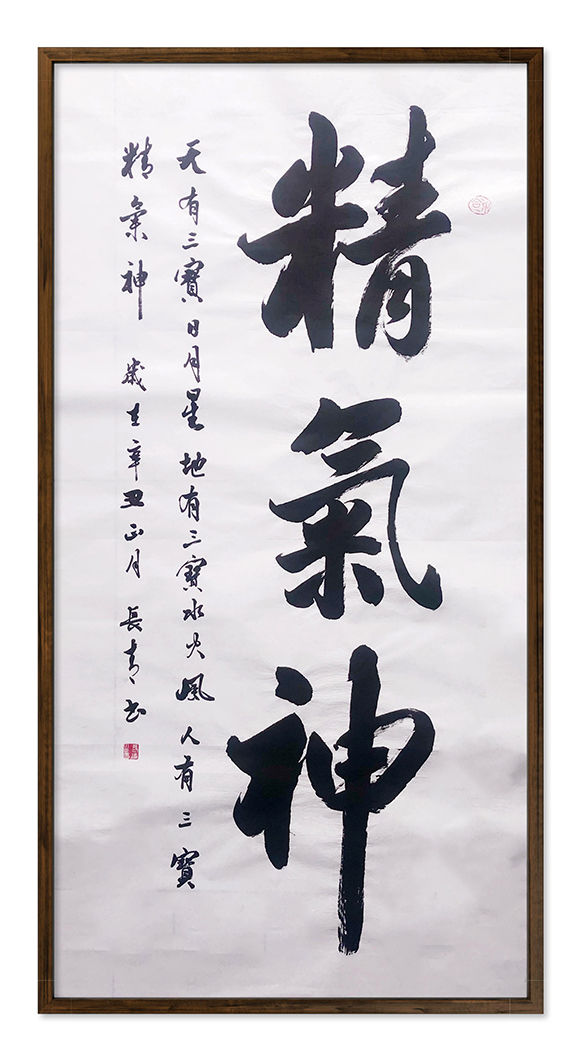 精氣神
天有三寳日月星地有三寳水火風人有三寳
精氣神 歲在辛丑正月 長青书